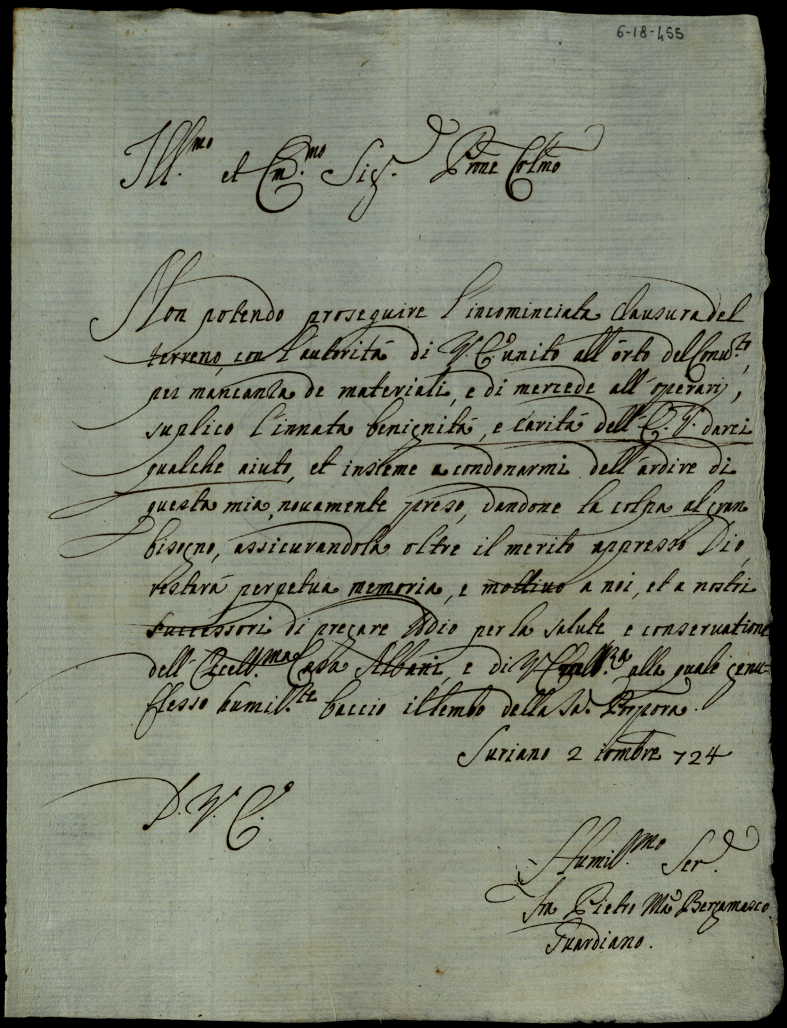 6-18-455
Ill.mo et Em.mo Sig.r Prone Colmo
Non potendo proseguire l'incominciata clausura del
terreno, con l'autorità di V. E. unito all'orto del Conv.to,
per mancanza de materiali, e di mercede all'operarij,
suplico l'innata benignità, e carità dell'E. V. darci
qualche aiuto, et insieme a condonarmi dell'ardire di
questa mia, novamente preso, dandone la colpa al gran
bisogno, assicurandola oltre il merito appresso Dio,
resterà perpetua memoria, e mottivo a noi, et a nostri
successori di pregare Iddio per la salute e conservatione
dell'Eccell.ma Casa Albani e di V. alla quale genu-
flesso humil.te baccio il lembo della Sa. Porpora.
Suriano 2 724
D. V. E.
Humil.mo Ser.
fra Pietro Ma Bergamasco
Guardiano.